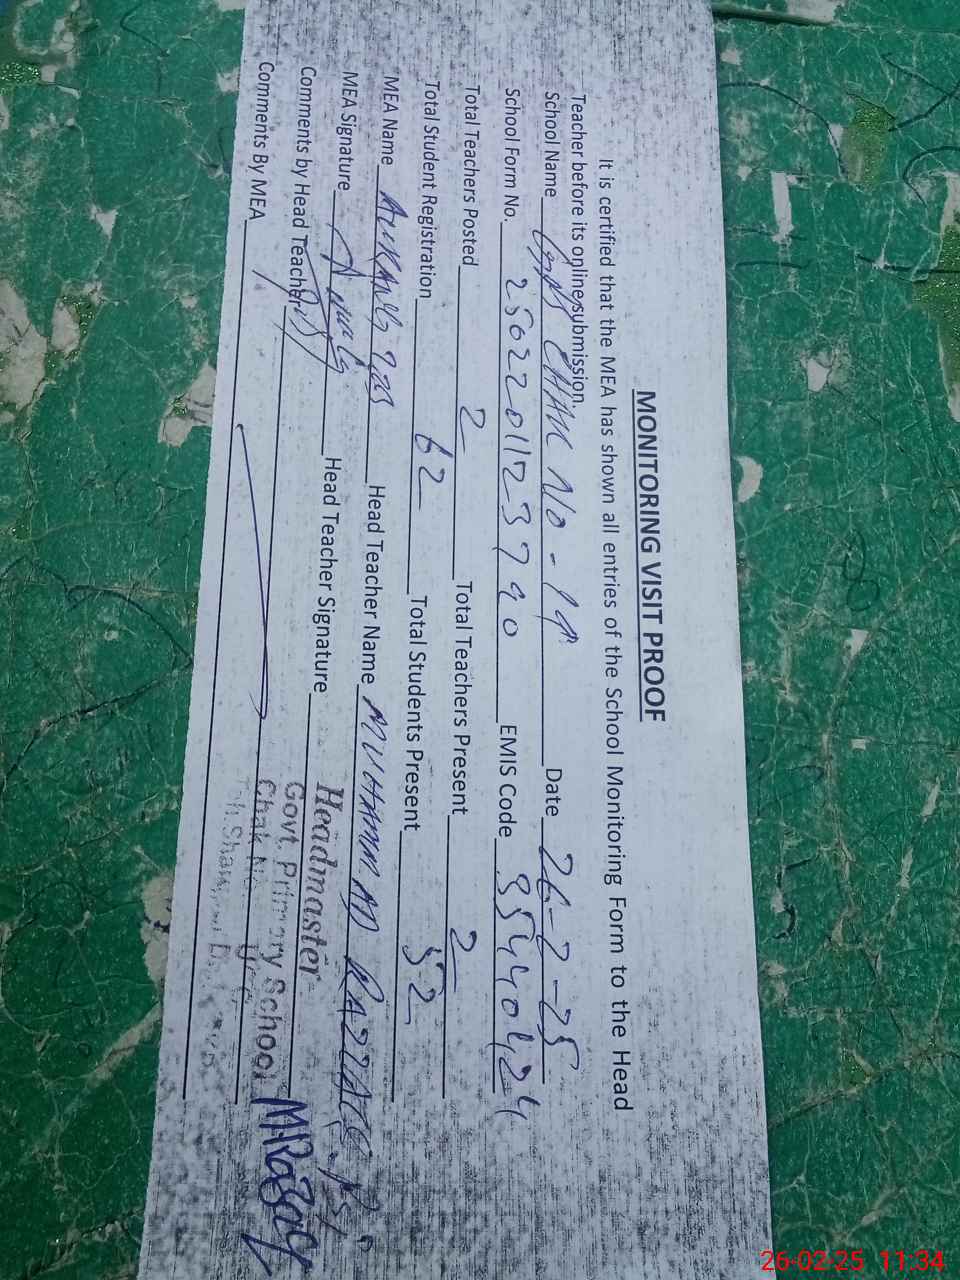 MONITORING VISIT PROOF
It is certified that the MEA has shown all entries of the School Monitoring Form to the Head
Teacher before its online submission.
School Name GPS CHAK No - 19 Date 26-2-25
School Form No. 2502201123790 EMIS Code 35440424
Total Teachers Posted 2 Total Teachers Present 2
Total Student Registration 62 Total Students Present 52
MEA Name Head Teacher Name MUHAMMAD RAZZAQ
MEA Signature Head Teacher Signature
Headmaster
Comments by Head Teacher
Govt. Primary School
Comments By MEA
Chak No
26-02-25 11:34